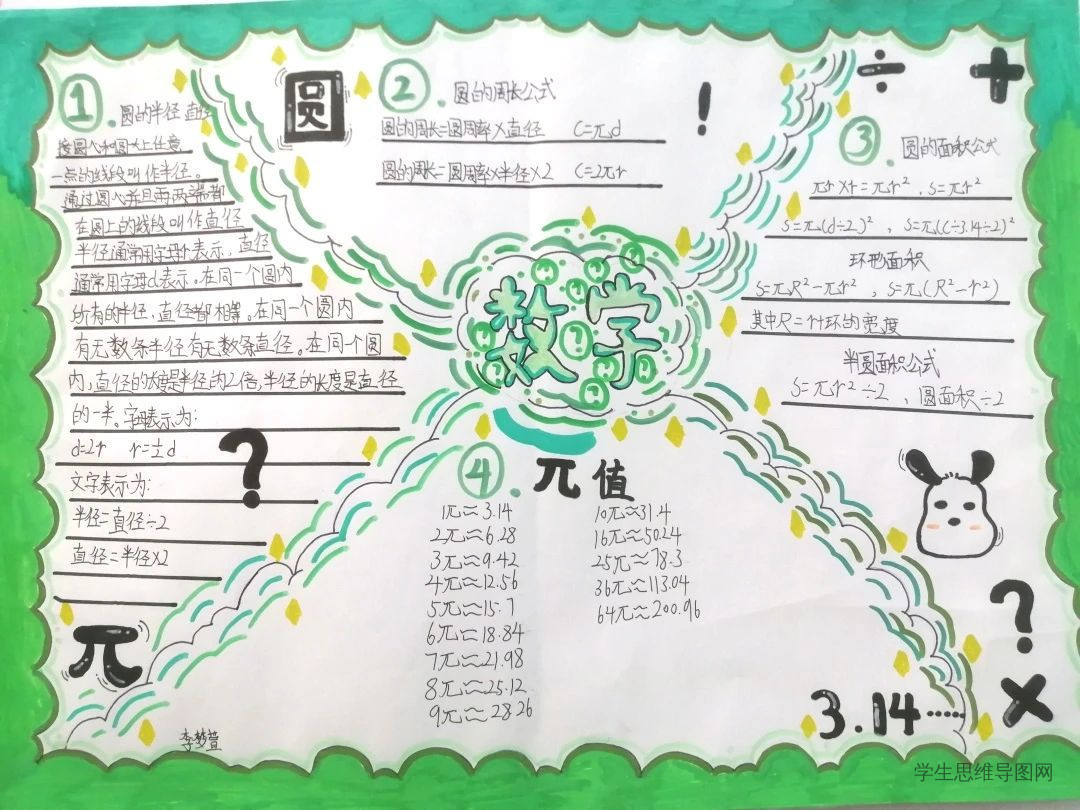 圆
1.
圆的半径 直径
接圆心和圆上任意
一点的线段叫作半径。
通过圆心并且两端都
在圆上的线段叫作直径
半径通常用字母r表示，直径
通常用字母d表示。在同一个圆内
所有的半径，直径都相等。在同一个圆内
有无数条半径有无数条直径。在同一个圆
内，直径的长度是半径的2倍，半径的长度是直径
的一半。字母表示为：
d=2r r=½d
文字表示为：
半径=直径÷2
直径=半径×2
?
π
李梦萱
2.
圆的周长公式
圆的周长=圆周率×直径 C=πd
圆的周长=圆周率×半径×2 C=2πr
!
÷ +
3.
圆的面积公式
πr×r=πr²，S=πr²
S=π(d÷2)²，S=π(C÷3.14÷2)²
环形面积
S=πR²-πr²，S=π(R²-r²)
其中R=r+环的宽度
半圆面积公式
S=πr²÷2，圆面积÷2
数学
4.
π值
1π≈3.14
2π≈6.28
3π≈9.42
4π≈12.56
5π≈15.7
6π≈18.84
7π≈21.98
8π≈25.12
9π≈28.26
10π≈31.4
16π≈50.24
25π≈78.3
36π≈113.04
64π≈200.96
?
×
3.14……
学生思维导图网